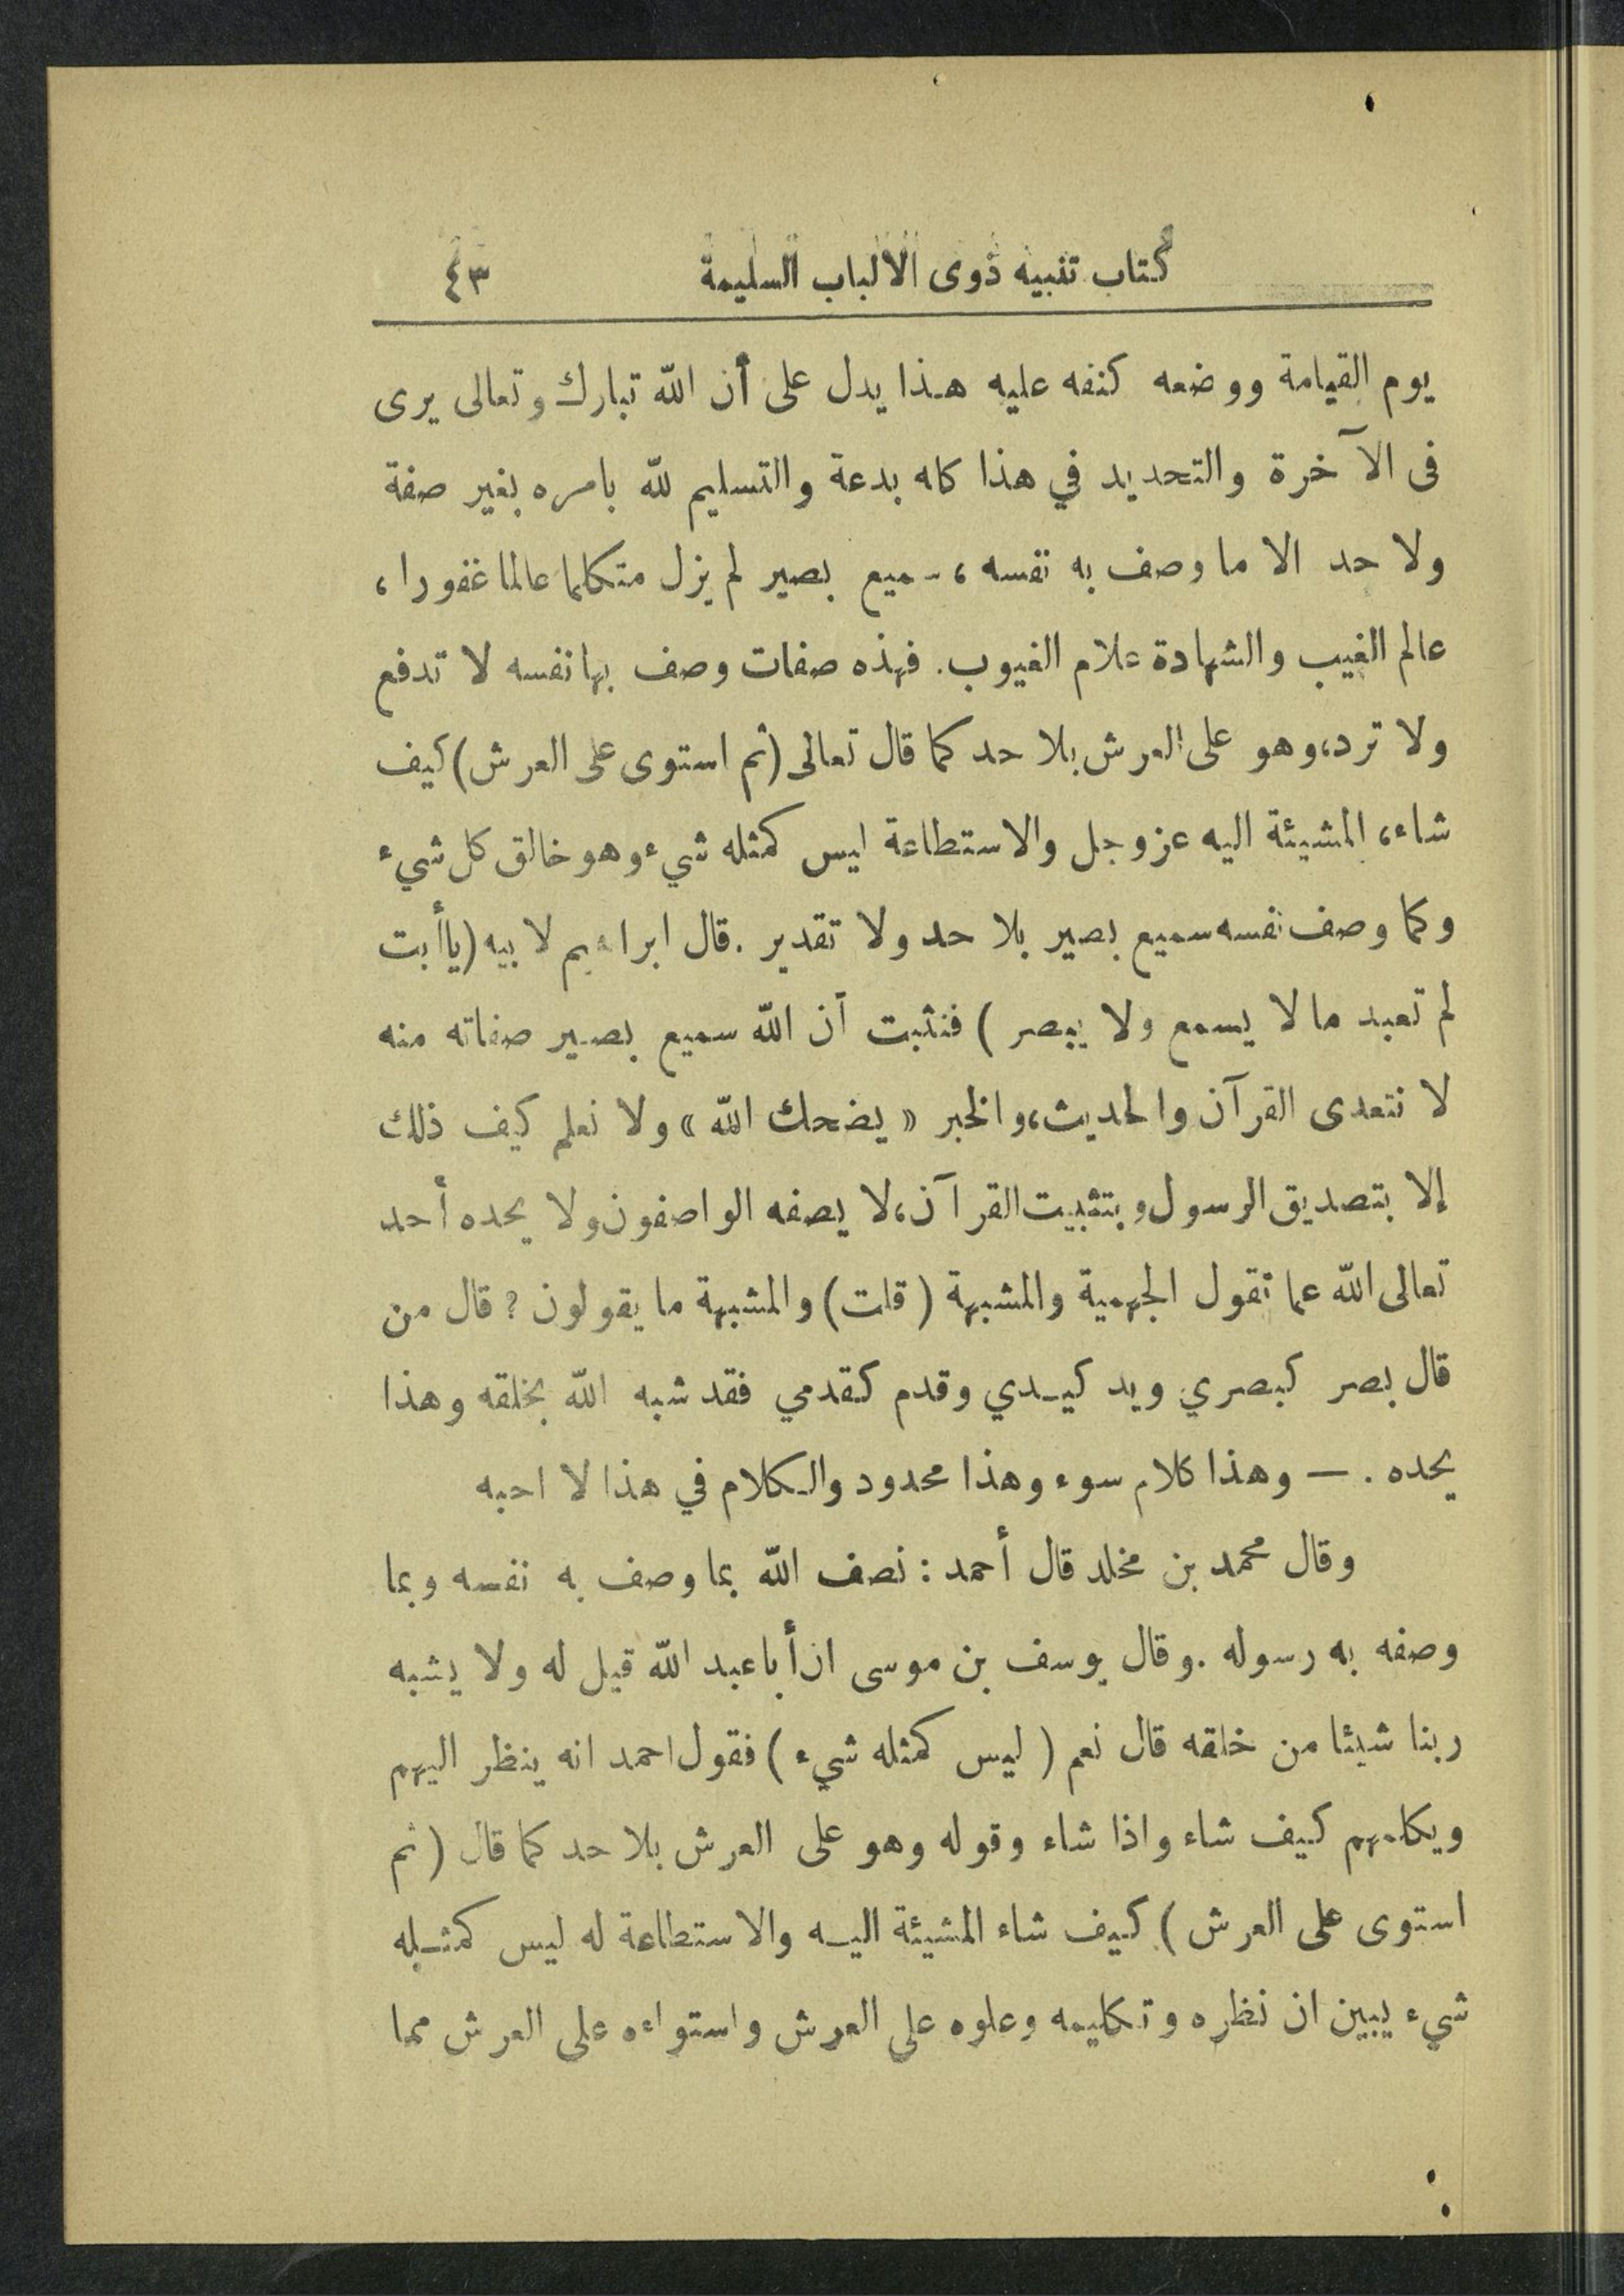 كتاب تنبيه ذوى الالباب السليمة ٤٣
يوم القيامة ووضعه كنفه عليه هذا يدل على أن الله تبارك وتعالى يرى
فى الآخرة والتحديد في هذا كله بدعة والتسليم لله بامره بغير صفة
ولا حد الا ما وصف به نفسه ، سميع بصير لم يزل متكلما عالما غفورا ،
عالم الغيب والشهادة علام الغيوب. فهذه صفات وصف بها نفسه لا تدفع
ولا ترد، وهو على العرش بلا حد كما قال تعالى (ثم استوى على العرش) كيف
شاء، المشيئة اليه عز وجل والاستطاعة ليس كمثله شيء وهو خالق كل شيء
وكما وصف نفسه سميع بصير بلا حد ولا تقدير . قال ابراهيم لابيه (ياأبت
لم تعبد ما لا يسمع ولا يبصر ) فنثبت أن الله سميع بصير صفاته منه
لا نتعدى القرآن والحديث، والخبر « يضحك الله » ولا نعلم كيف ذلك
إلا بتصديق الرسول وبتثبيت القرآن، لا يصفه الواصفون ولا يحده أحد
تعالى الله عما تقول الجهمية والمشبهة ( قلت ) والمشبهة ما يقولون ? قال من
قال بصر كبصري ويد كيدي وقدم كقدمي فقد شبه الله بخلقه وهذا
يحده . — وهذا كلام سوء وهذا محدود والكلام في هذا لا احبه
وقال محمد بن مخلد قال أحمد : نصف الله بما وصف به نفسه وبما
وصفه به رسوله . وقال يوسف بن موسى ان أبا عبد الله قيل له ولا يشبه
ربنا شيئا من خلقه قال نعم ( ليس كمثله شيء ) فقول احمد انه ينظر اليهم
ويكلمهم كيف شاء واذا شاء وقوله وهو على العرش بلا حد كما قال ( ثم
استوى على العرش ) كيف شاء المشيئة اليه والاستطاعة له ليس كمثله
شيء يبين ان نظره وتكليمه وعلوه على العرش واستواءه على العرش مما